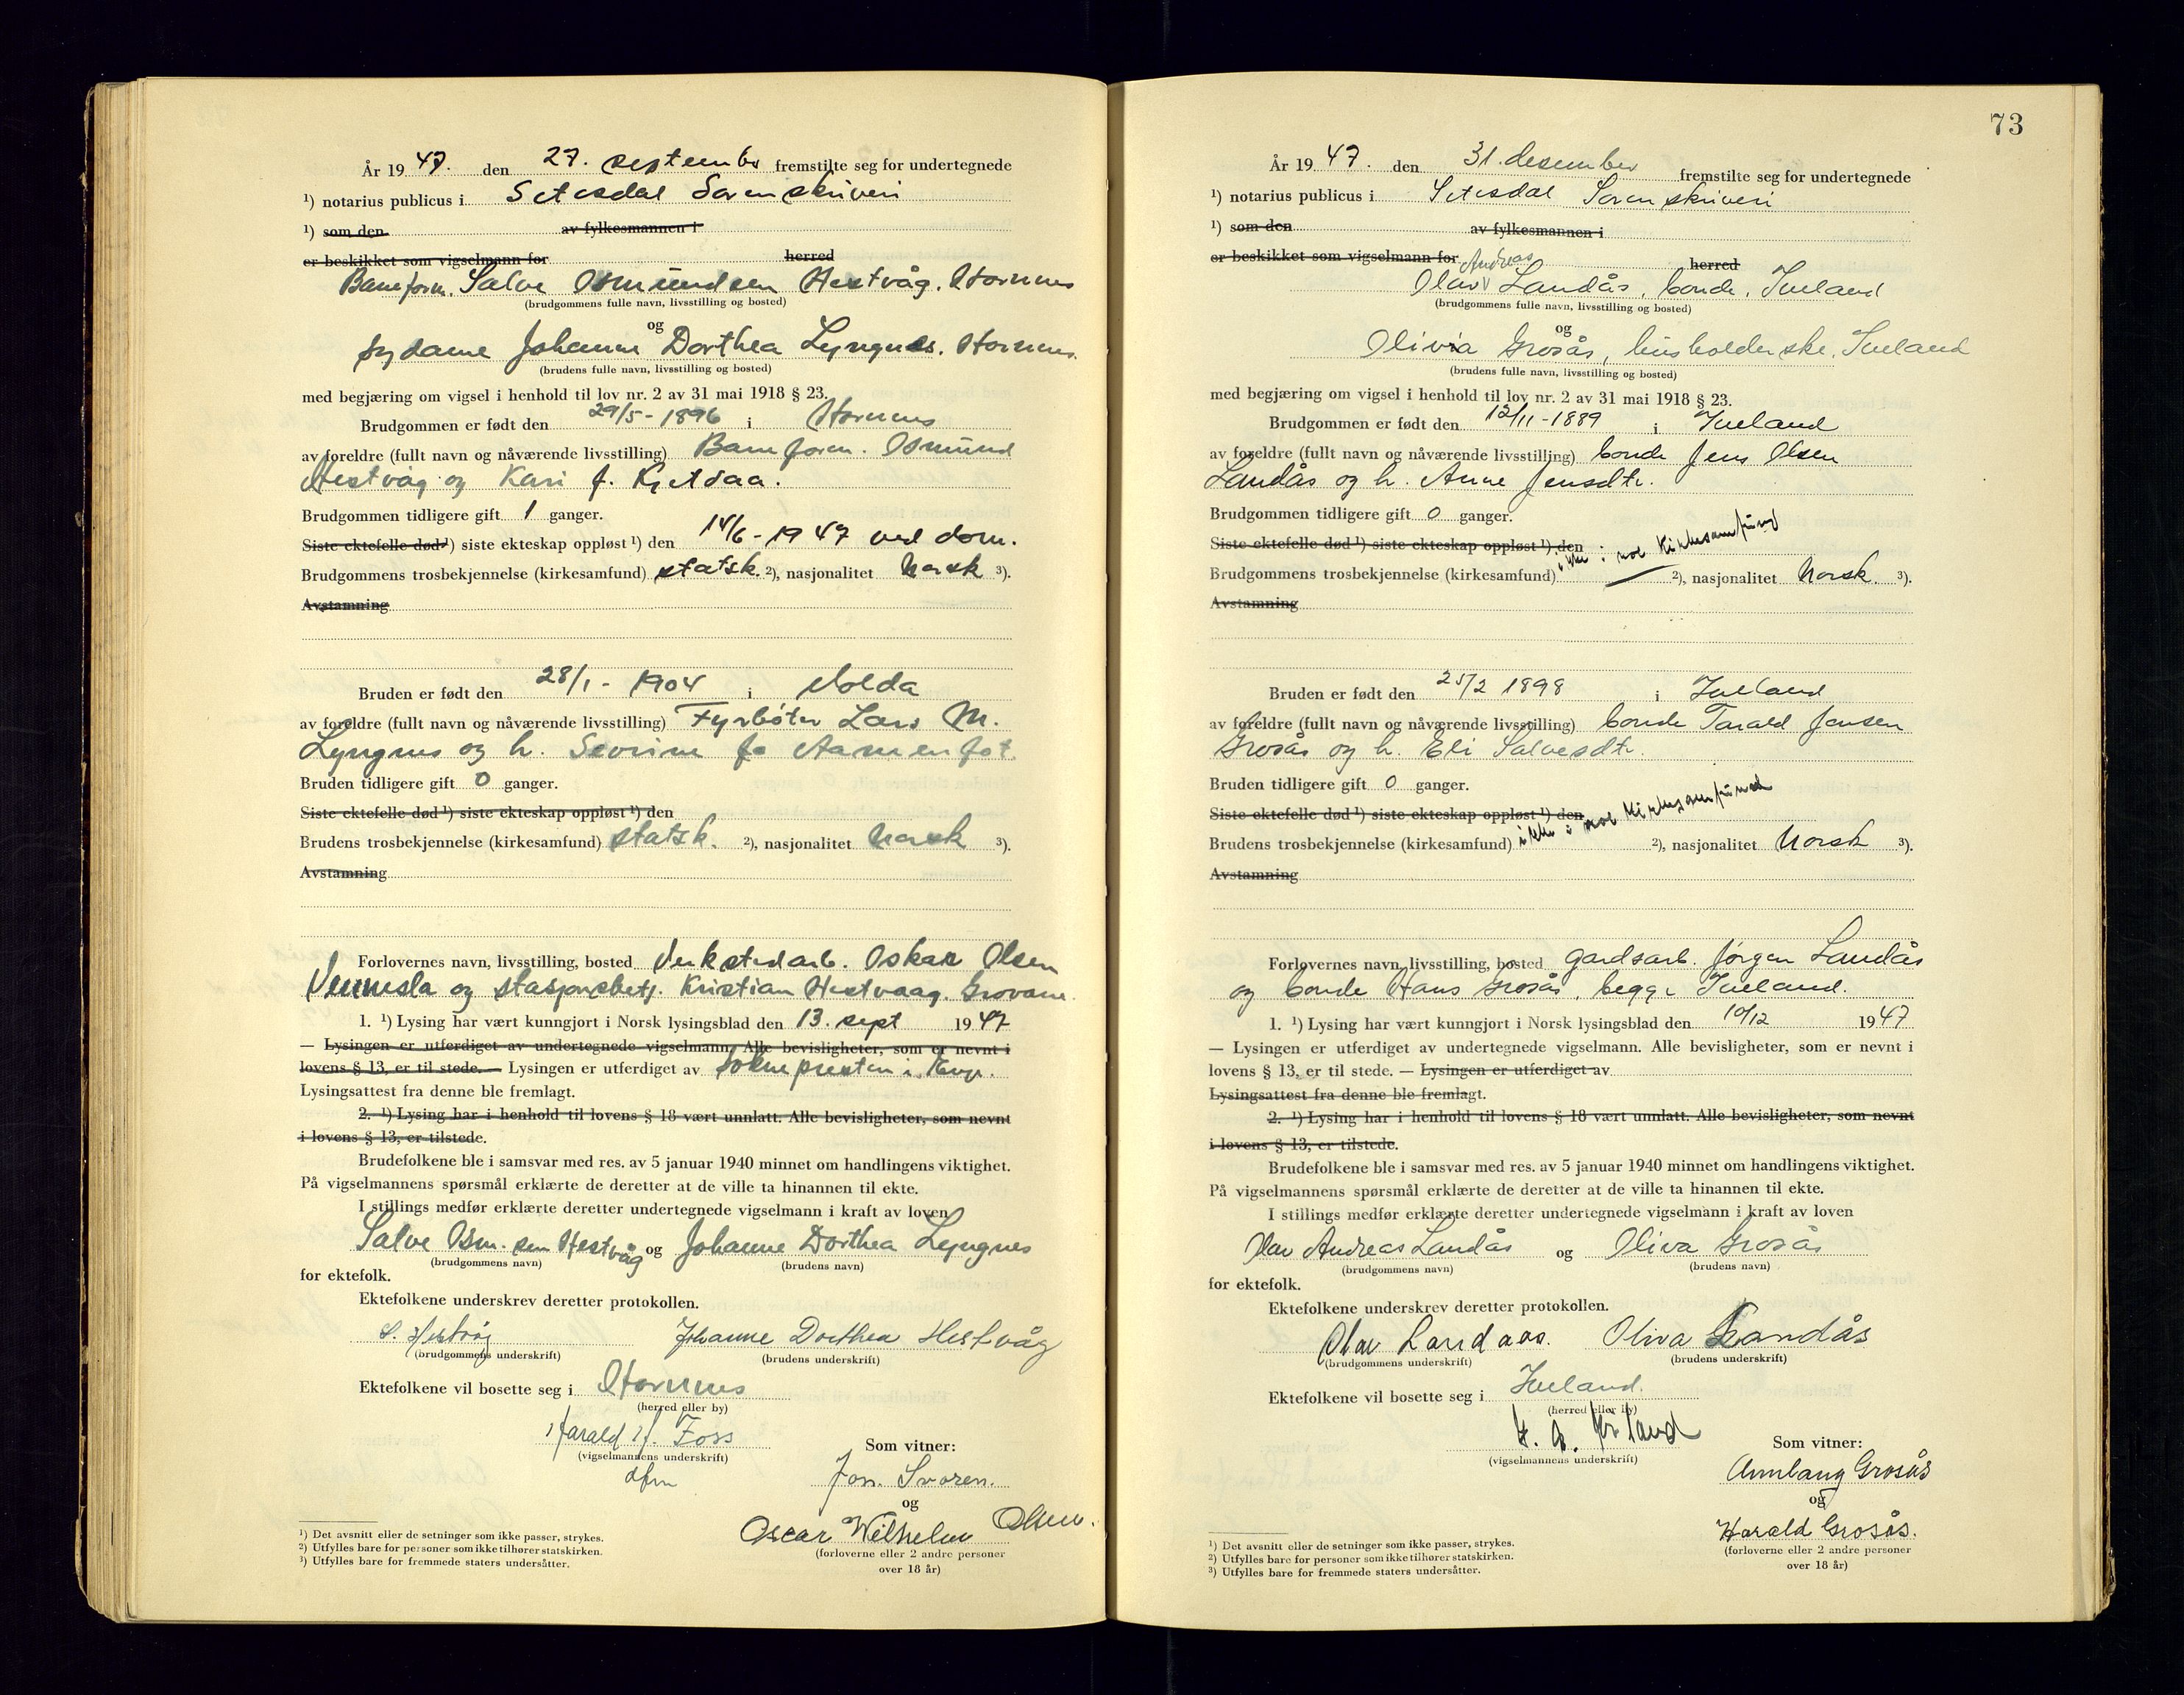 År 19 47. den 27. september fremstilte seg for undertegnede
¹) notarius publicus i Setesdal Sorenskriveri
¹) som den av fylkesmannen i
er beskikket som vigselmann for herred
Baneform. Salve Osmundsen Hestvåg. Hornnes
(brudgommens fulle navn, livsstilling og bosted)
og
sydame Johanne Dorthea Lyngnes. Hornnes.
(brudens fulle navn, livsstilling og bosted)
med begjæring om vigsel i henhold til lov nr. 2 av 31 mai 1918 § 23.
Brudgommen er født den 29/5 - 1896 i Hornnes
av foreldre (fullt navn og nåværende livsstilling) Baneform. Osmund
Hestvåg og Kari f. Kjetsaa.
Brudgommen tidligere gift 1 ganger.
Siste ektefelle død¹) siste ekteskap oppløst¹) den 14/6 - 1947 ved dom.
Brudgommens trosbekjennelse (kirkesamfund) statsk. ²), nasjonalitet Norsk ³).
Avstamning
Bruden er født den 28/1 - 1904 i Molda
av foreldre (fullt navn og nåværende livsstilling) Fyrbøter Lars M.
Lyngnes og h. Sevrine f.
Bruden tidligere gift 0 ganger.
Siste ektefelle død¹) siste ekteskap oppløst¹) den
Brudens trosbekjennelse (kirkesamfund) statsk. ²), nasjonalitet Norsk ³).
Avstamning
Forlovernes navn, livsstilling, bosted Verkstedarb. Oskar Olsen
Vennesla og stasjonsbetj. Kristian Hestvaag. Grovane.
1. ¹) Lysing har vært kunngjort i Norsk lysingsblad den 13. sept 19 47
— Lysingen er utferdiget av undertegnede vigselmann. Alle bevisligheter, som er nevnt i
lovens § 13, er til stede. — Lysingen er utferdiget av Soknepresten i Evje.
Lysingsattest fra denne ble fremlagt.
2. ¹) Lysing har i henhold til lovens § 18 vært unnlatt. Alle bevisligheter, som nevnt
i lovens § 13, er tilstede.
Brudefolkene ble i samsvar med res. av 5 januar 1940 minnet om handlingens viktighet.
På vigselmannens spørsmål erklærte de deretter at de ville ta hinannen til ekte.
I stillings medfør erklærte deretter undertegnede vigselmann i kraft av loven
Salve Osm. sen Hestvåg og Johanne Dorthea Lyngnes
(brudgommens navn) (brudens navn)
for ektefolk.
Ektefolkene underskrev deretter protokollen.
S. Hestvåg Johanne Dorthea Hestvåg
(brudgommens underskrift) (brudens underskrift)
Ektefolkene vil bosette seg i Hornnes
(herred eller by)
Harald H. Foss
(vigselmannens underskrift)
dfm
Som vitner:
Jon. Svoren.
og
Oscar Wilhelm Olsen.
(forloverne eller 2 andre personer
over 18 år)
¹) Det avsnitt eller de setninger som ikke passer, strykes.
²) Utfylles bare for personer som ikke tilhører statskirken.
³) Utfylles bare for fremmede staters undersåtter.
73
År 19 47. den 31. desember fremstilte seg for undertegnede
¹) notarius publicus i Setesdal Sorenskriveri
¹) som den av fylkesmannen i
er beskikket som vigselmann for herred
Andreas
Olav Landås, bonde, Iveland
(brudgommens fulle navn, livsstilling og bosted)
og
Olivia Grosås, husholderske, Iveland
(brudens fulle navn, livsstilling og bosted)
med begjæring om vigsel i henhold til lov nr. 2 av 31 mai 1918 § 23.
Brudgommen er født den 12/11 - 1889 i Iveland
av foreldre (fullt navn og nåværende livsstilling) bonde Jens Olsen
Landås og h. Anne Jensdtr.
Brudgommen tidligere gift 0 ganger.
Siste ektefelle død¹) siste ekteskap oppløst¹) den
ikke i noe kirkesamfund
Brudgommens trosbekjennelse (kirkesamfund) ²), nasjonalitet Norsk ³).
Avstamning
Bruden er født den 25/2 1898 i Iveland
av foreldre (fullt navn og nåværende livsstilling) bonde Tarald Jensen
Grosås og h. Eli Salvesdtr.
Bruden tidligere gift 0 ganger.
Siste ektefelle død¹) siste ekteskap oppløst¹) den
ikke i noe kirkesamfund
Brudens trosbekjennelse (kirkesamfund) ²), nasjonalitet Norsk ³).
Avstamning
Forlovernes navn, livsstilling, bosted gardsarb. Jørgen Landås
og bonde Hans Grosås, begge Iveland.
1. ¹) Lysing har vært kunngjort i Norsk lysingsblad den 10/12 19 47
— Lysingen er utferdiget av undertegnede vigselmann. Alle bevisligheter, som er nevnt i
lovens § 13, er til stede. — Lysingen er utferdiget av
Lysingsattest fra denne ble fremlagt.
2. ¹) Lysing har i henhold til lovens § 18 vært unnlatt. Alle bevisligheter, som nevnt
i lovens § 13, er tilstede.
Brudefolkene ble i samsvar med res. av 5 januar 1940 minnet om handlingens viktighet.
På vigselmannens spørsmål erklærte de deretter at de ville ta hinannen til ekte.
I stillings medfør erklærte deretter undertegnede vigselmann i kraft av loven
Olav Andreas Landås og Oliva Grosås
(brudgommens navn) (brudens navn)
for ektefolk.
Ektefolkene underskrev deretter protokollen.
Olav Landaas. Oliva Landås
(brudgommens underskrift) (brudens underskrift)
Ektefolkene vil bosette seg i Iveland.
(herred eller by)
(vigselmannens underskrift)
Som vitner:
Annlaug Grosås
og
Harald Grosås.
(forloverne eller 2 andre personer
over 18 år)
¹) Det avsnitt eller de setninger som ikke passer, strykes.
²) Utfylles bare for personer som ikke tilhører statskirken.
³) Utfylles bare for fremmede staters undersåtter.